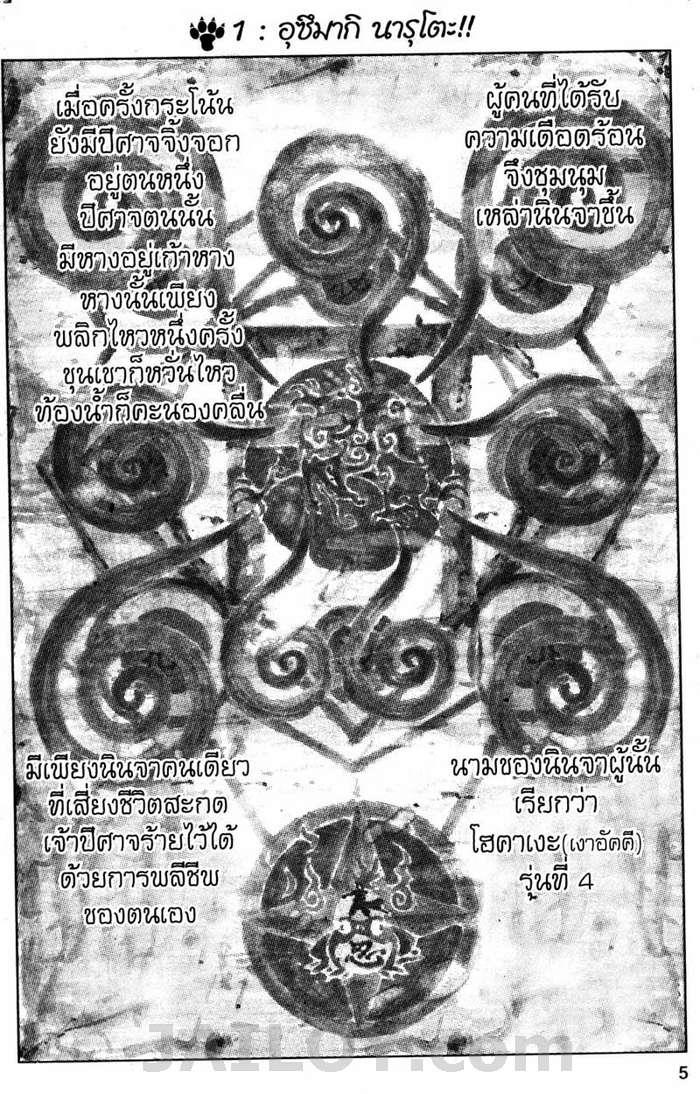 1 : อุซึมากิ นารุโตะ!!
เมื่อครั้งกระโน้น
ยังมีปีศาจจิ้งจอก
อยู่ตนหนึ่ง
ปีศาจตนนั้น
มีหางอยู่เก้าหาง
หางนั้นเพียง
พลิกไหวหนึ่งครั้ง
ขุนเขาก็หวั่นไหว
ท้องน้ำก็คะนองคลื่น
ผู้คนที่ได้รับ
ความเดือดร้อน
จึงชุมนุม
เหล่านินจาขึ้น
มีเพียงนินจาคนเดียว
ที่เสี่ยงชีวิตสะกด
เจ้าปีศาจร้ายไว้ได้
ด้วยการพลีชีพ
ของตนเอง
นามของนินจาผู้นั้น
เรียกว่า
โฮคาเงะ(เงาอัคคี)
รุ่นที่ 4
5